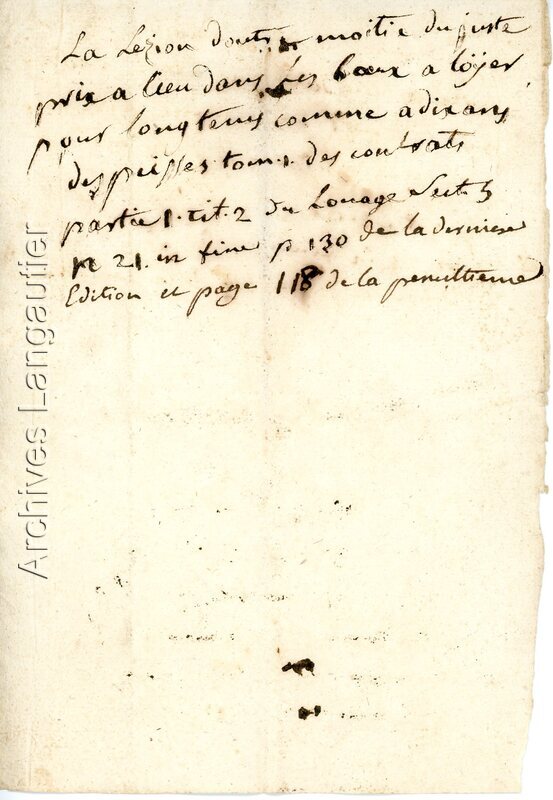 La Lezion doutre moitie du juste
prix a lieu dans les baux a loÿer
pour longtems comme a dix ans
despeisses tom. 1. des contrats
partie 1. tit. 2 du Louage Sect. 5
n 21. in fine p 130 de la derniere
Edition et page 118 de la penultieme
Archives Langautier